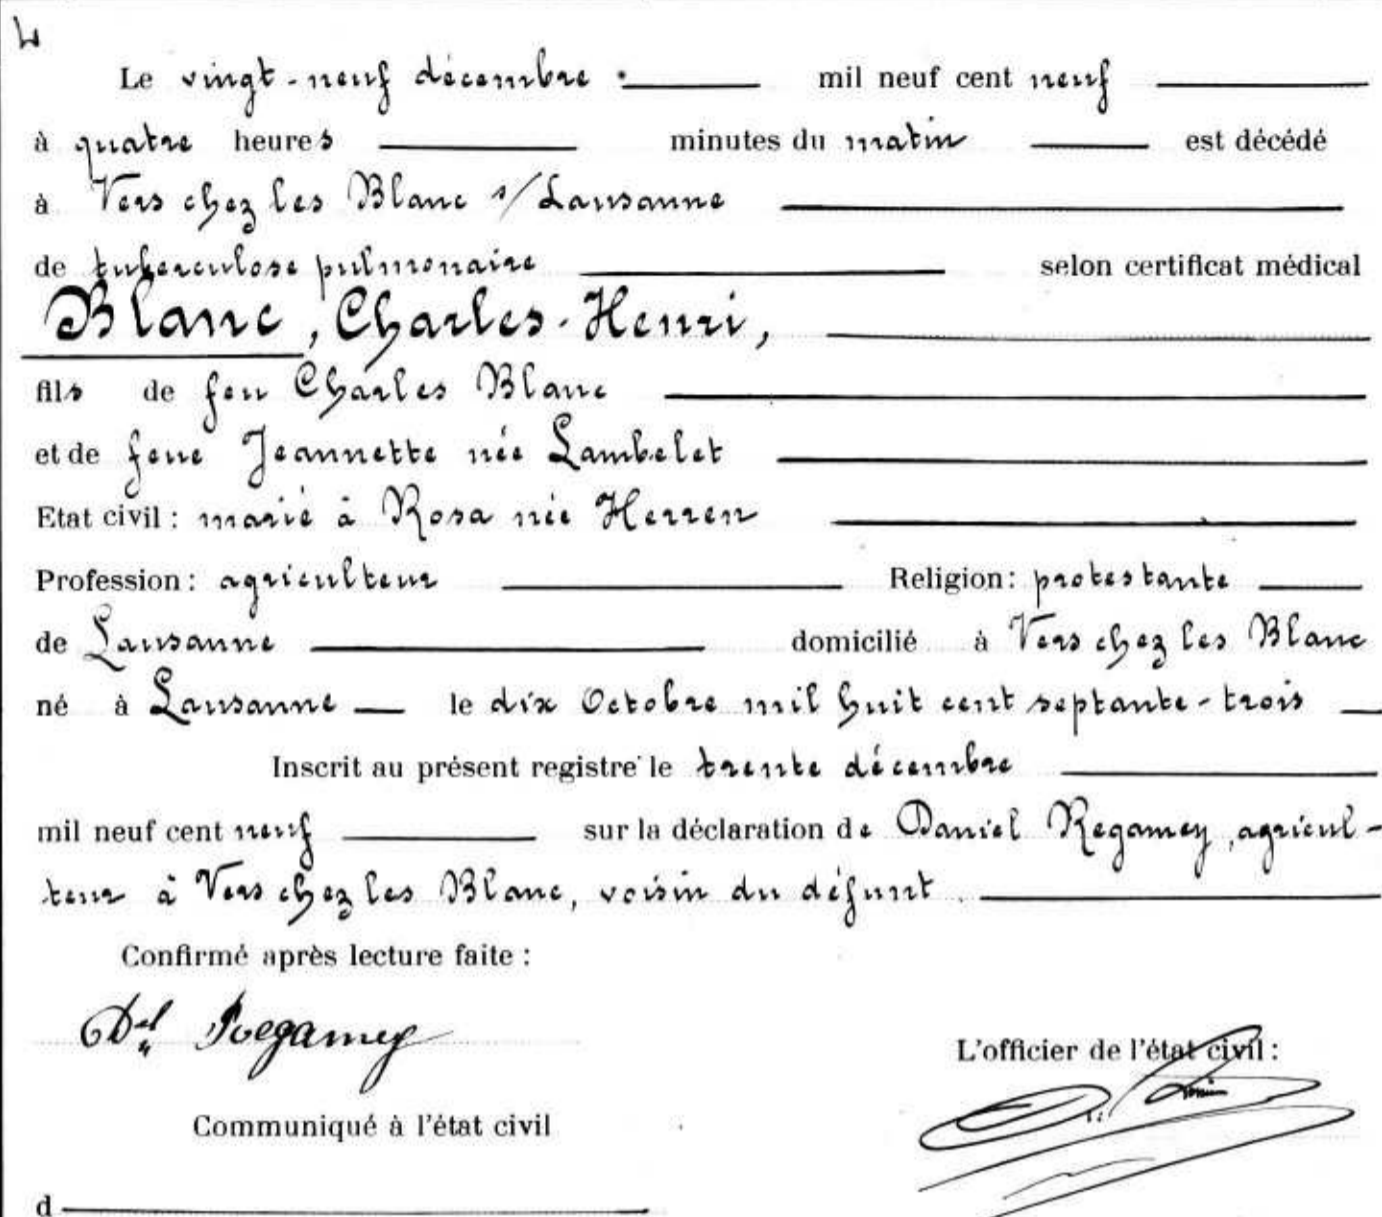 4
Le vingt-neuf décembre mil neuf cent neuf
à quatre heures minutes du matin est décédé
à Vers chez les Blanc s/Lausanne
de tuberculose pulmonaire selon certificat médical
Blanc, Charles-Henri,
fils de feu Charles Blanc
et de feue Jeannette née Lambelet
Etat civil : marié à Rosa née Herren
Profession : agriculteur Religion : protestante
de Lausanne domicilié à Vers chez les Blanc
né à Lausanne le dix Octobre mil huit cent septante-trois
Inscrit au présent registre le trente décembre
mil neuf cent neuf sur la déclaration de Daniel Regamey, agricul-
teur à Vers chez les Blanc, voisin du défunt
Confirmé après lecture faite :
Dl Regamey
L'officier de l'état civil :
Communiqué à l'état civil
d